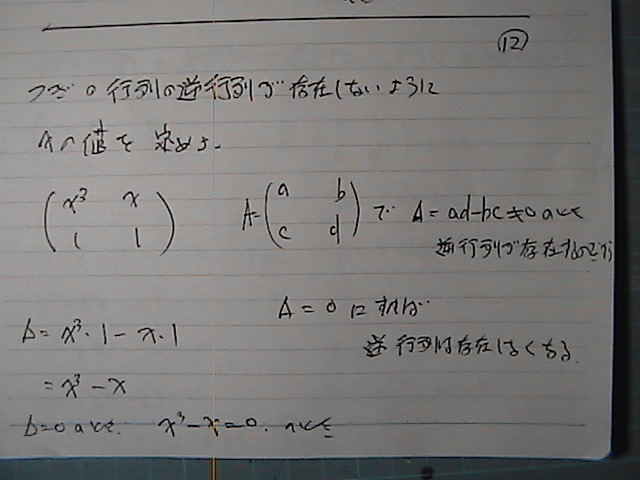 ⑫
つぎの行列の逆行列が存在しないように
xの値を定めよ。
(x³ x
1 1)
A=(a b
c d) で Δ=ad-bc≠0のとき
逆行列が存在するのだから
Δ=0にすれば
逆行列は存在しなくなる
Δ=x³・1-x・1
=x³-x
Δ=0のとき. x³-x=0. のとき